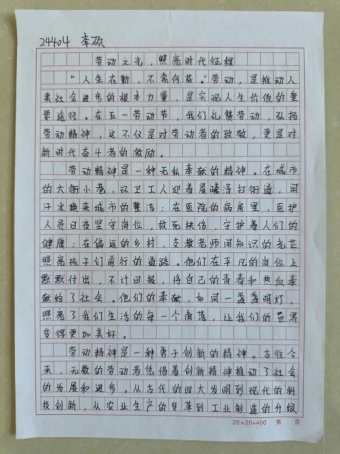 24404 李砾
劳动之光，照亮时代征程
“人生在勤，不索何获。”劳动，是推动人
类社会进步的根本力量，是实现人生价值的重
要途径。在五一劳动节，我们礼赞劳动，弘扬
劳动精神，这不仅是对劳动者的致敬，更是对
新时代奋斗者的激励。
劳动精神是一种无私奉献的精神。在城市
的大街小巷，环卫工人迎着晨曦清扫街道，用
汗水换来城市的整洁；在医院的病房里，医护
人员日夜坚守岗位，救死扶伤，守护着人们的
健康；在偏远的乡村，支教老师用知识的光芒
照亮孩子们前行的道路。他们在平凡的岗位上
默默付出，不计回报，将自己的青春和热血奉
献给了社会。他们的奉献，如同一盏盏明灯，
照亮了我们生活的每一个角落，让我们的世界
变得更加美好。
劳动精神是一种勇于创新的精神。古往今
来，无数的劳动者凭借着创新精神推动了社会
的发展和进步。从古代的四大发明到现代的科
技创新，从农业生产的变革到工业制造的升级
20×20=400 第 页